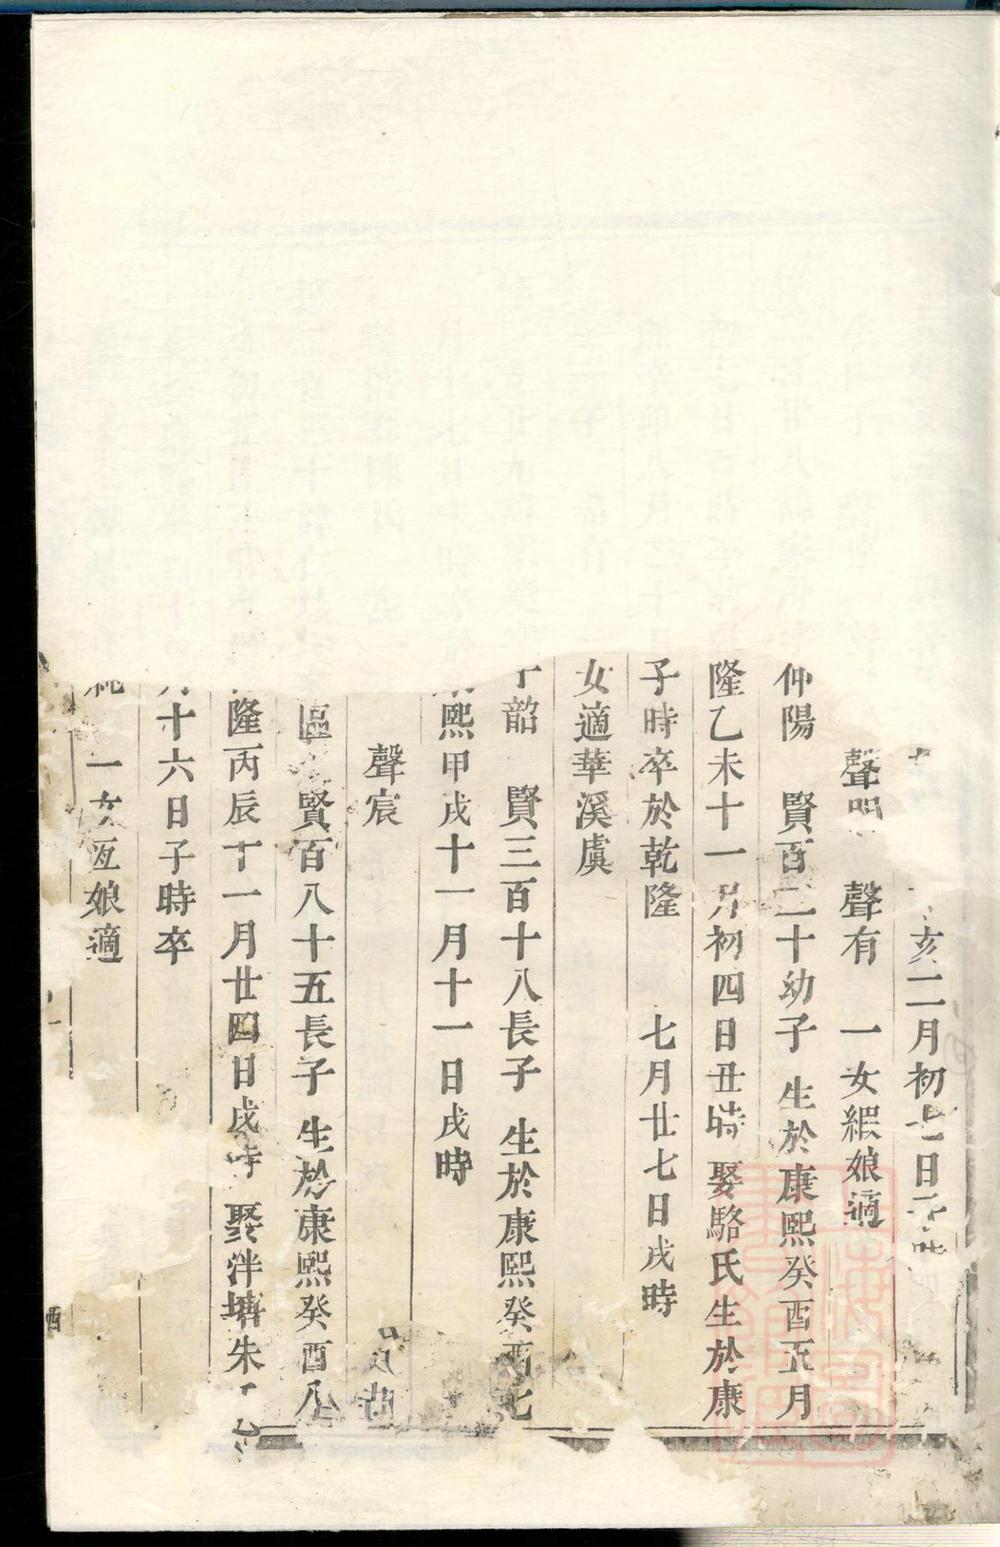 亥二月初七日
聲 聲有 一女緞娘適
仲陽 賢百二十幼子 生於康熙癸酉五月
隆乙未十一月初四日丑時 娶駱氏生於康
子時卒於乾隆 七月廿七日戌時
女適華溪虞
韶 賢三百十八長子 生於康熙癸酉七
熙甲戌十一月十一日戌時
聲宸
區 賢百八十五長子 生於康熙癸酉八
隆丙辰十一月廿四日戌時 娶泮塘朱
十六日子時卒
一女亙娘適
酉